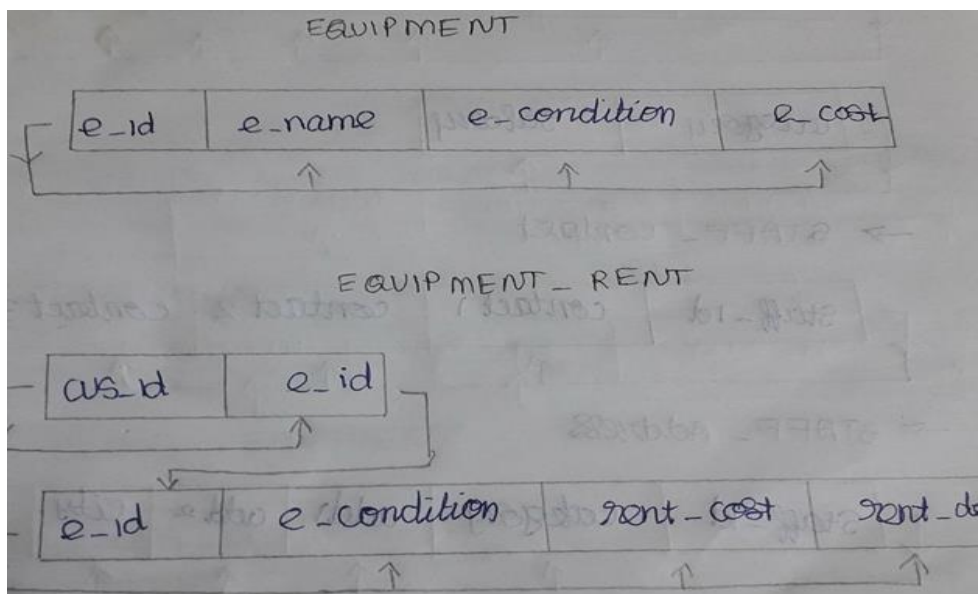 EQUIPMENT
e_id e_name e_condition e_cost
EQUIPMENT_RENT
cus_id e_id
e_id e_condition rent_cost